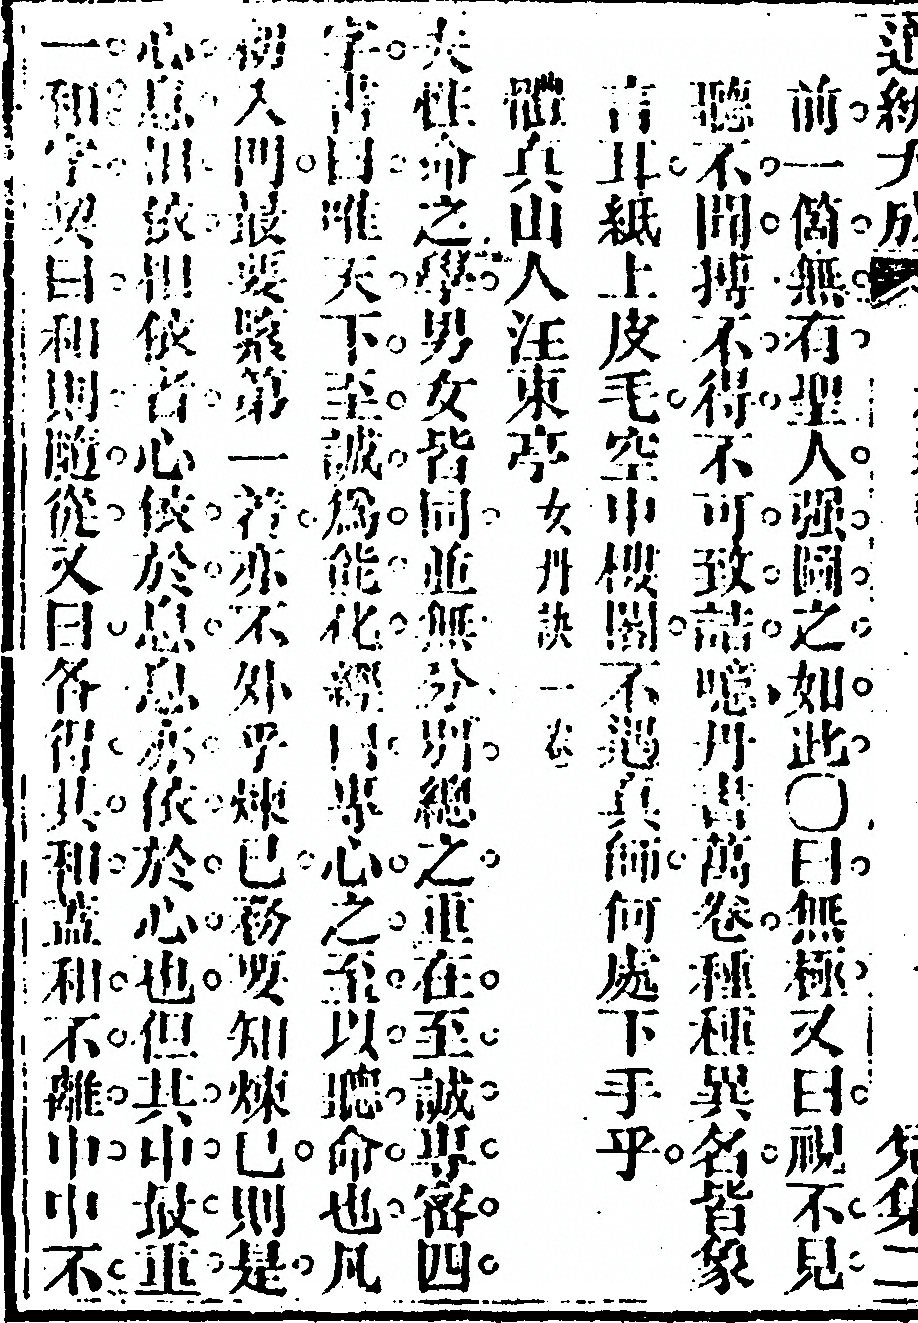 道統大成
前一箇無有聖人强圖之如此〇曰無極又曰視不見
聽不聞搏不得不可致詰噫丹書萬卷種種異名皆象
言耳紙上皮毛空中樓閣不遇真師何處下手乎
體真山人汪東亭女丹訣一卷
夫性命之學男女皆同並無分別總之重在至誠專密四
字書曰唯天下至誠爲能化經曰專心之至以聽命也凡
初入門最要緊第一着亦不外乎煉己務要知煉己則是
心息相依相依者心依於息息亦依於心也但其中最重
一和字契曰和則隨從又曰各得其和蓋和不離中中不